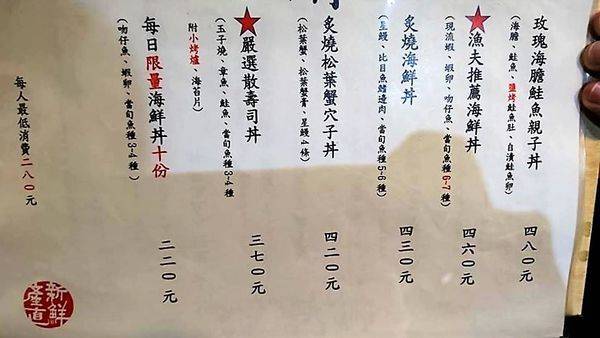 玫瑰海膽鮭魚親子丼
(海膽、鮭魚、鹽烤鮭魚肚、自漬鮭魚卵)
四八0元
★漁夫推薦海鮮丼
(現流蝦、蝦卵、吻仔魚、當旬魚種6-7種)
四六0元
炙燒海鮮丼
(星鰻、比目魚鰭邊肉、當旬魚種5-6種)
四三0元
炙燒松葉蟹穴子丼
(松葉蟹、松葉蟹膏、星鰻4條)
四二0元
★嚴選散壽司丼
(玉子燒、章魚、鮭魚、當旬魚種3-4種
附小烤爐、海苔片)
三七0元
每日限量海鮮丼十份
(吻仔魚、蝦卵、當旬魚種3-4種)
二二0元
每人最低消費二八0元
新鮮
產直